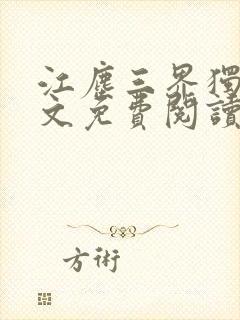 江塵三界獨
文免費閱讀
方術